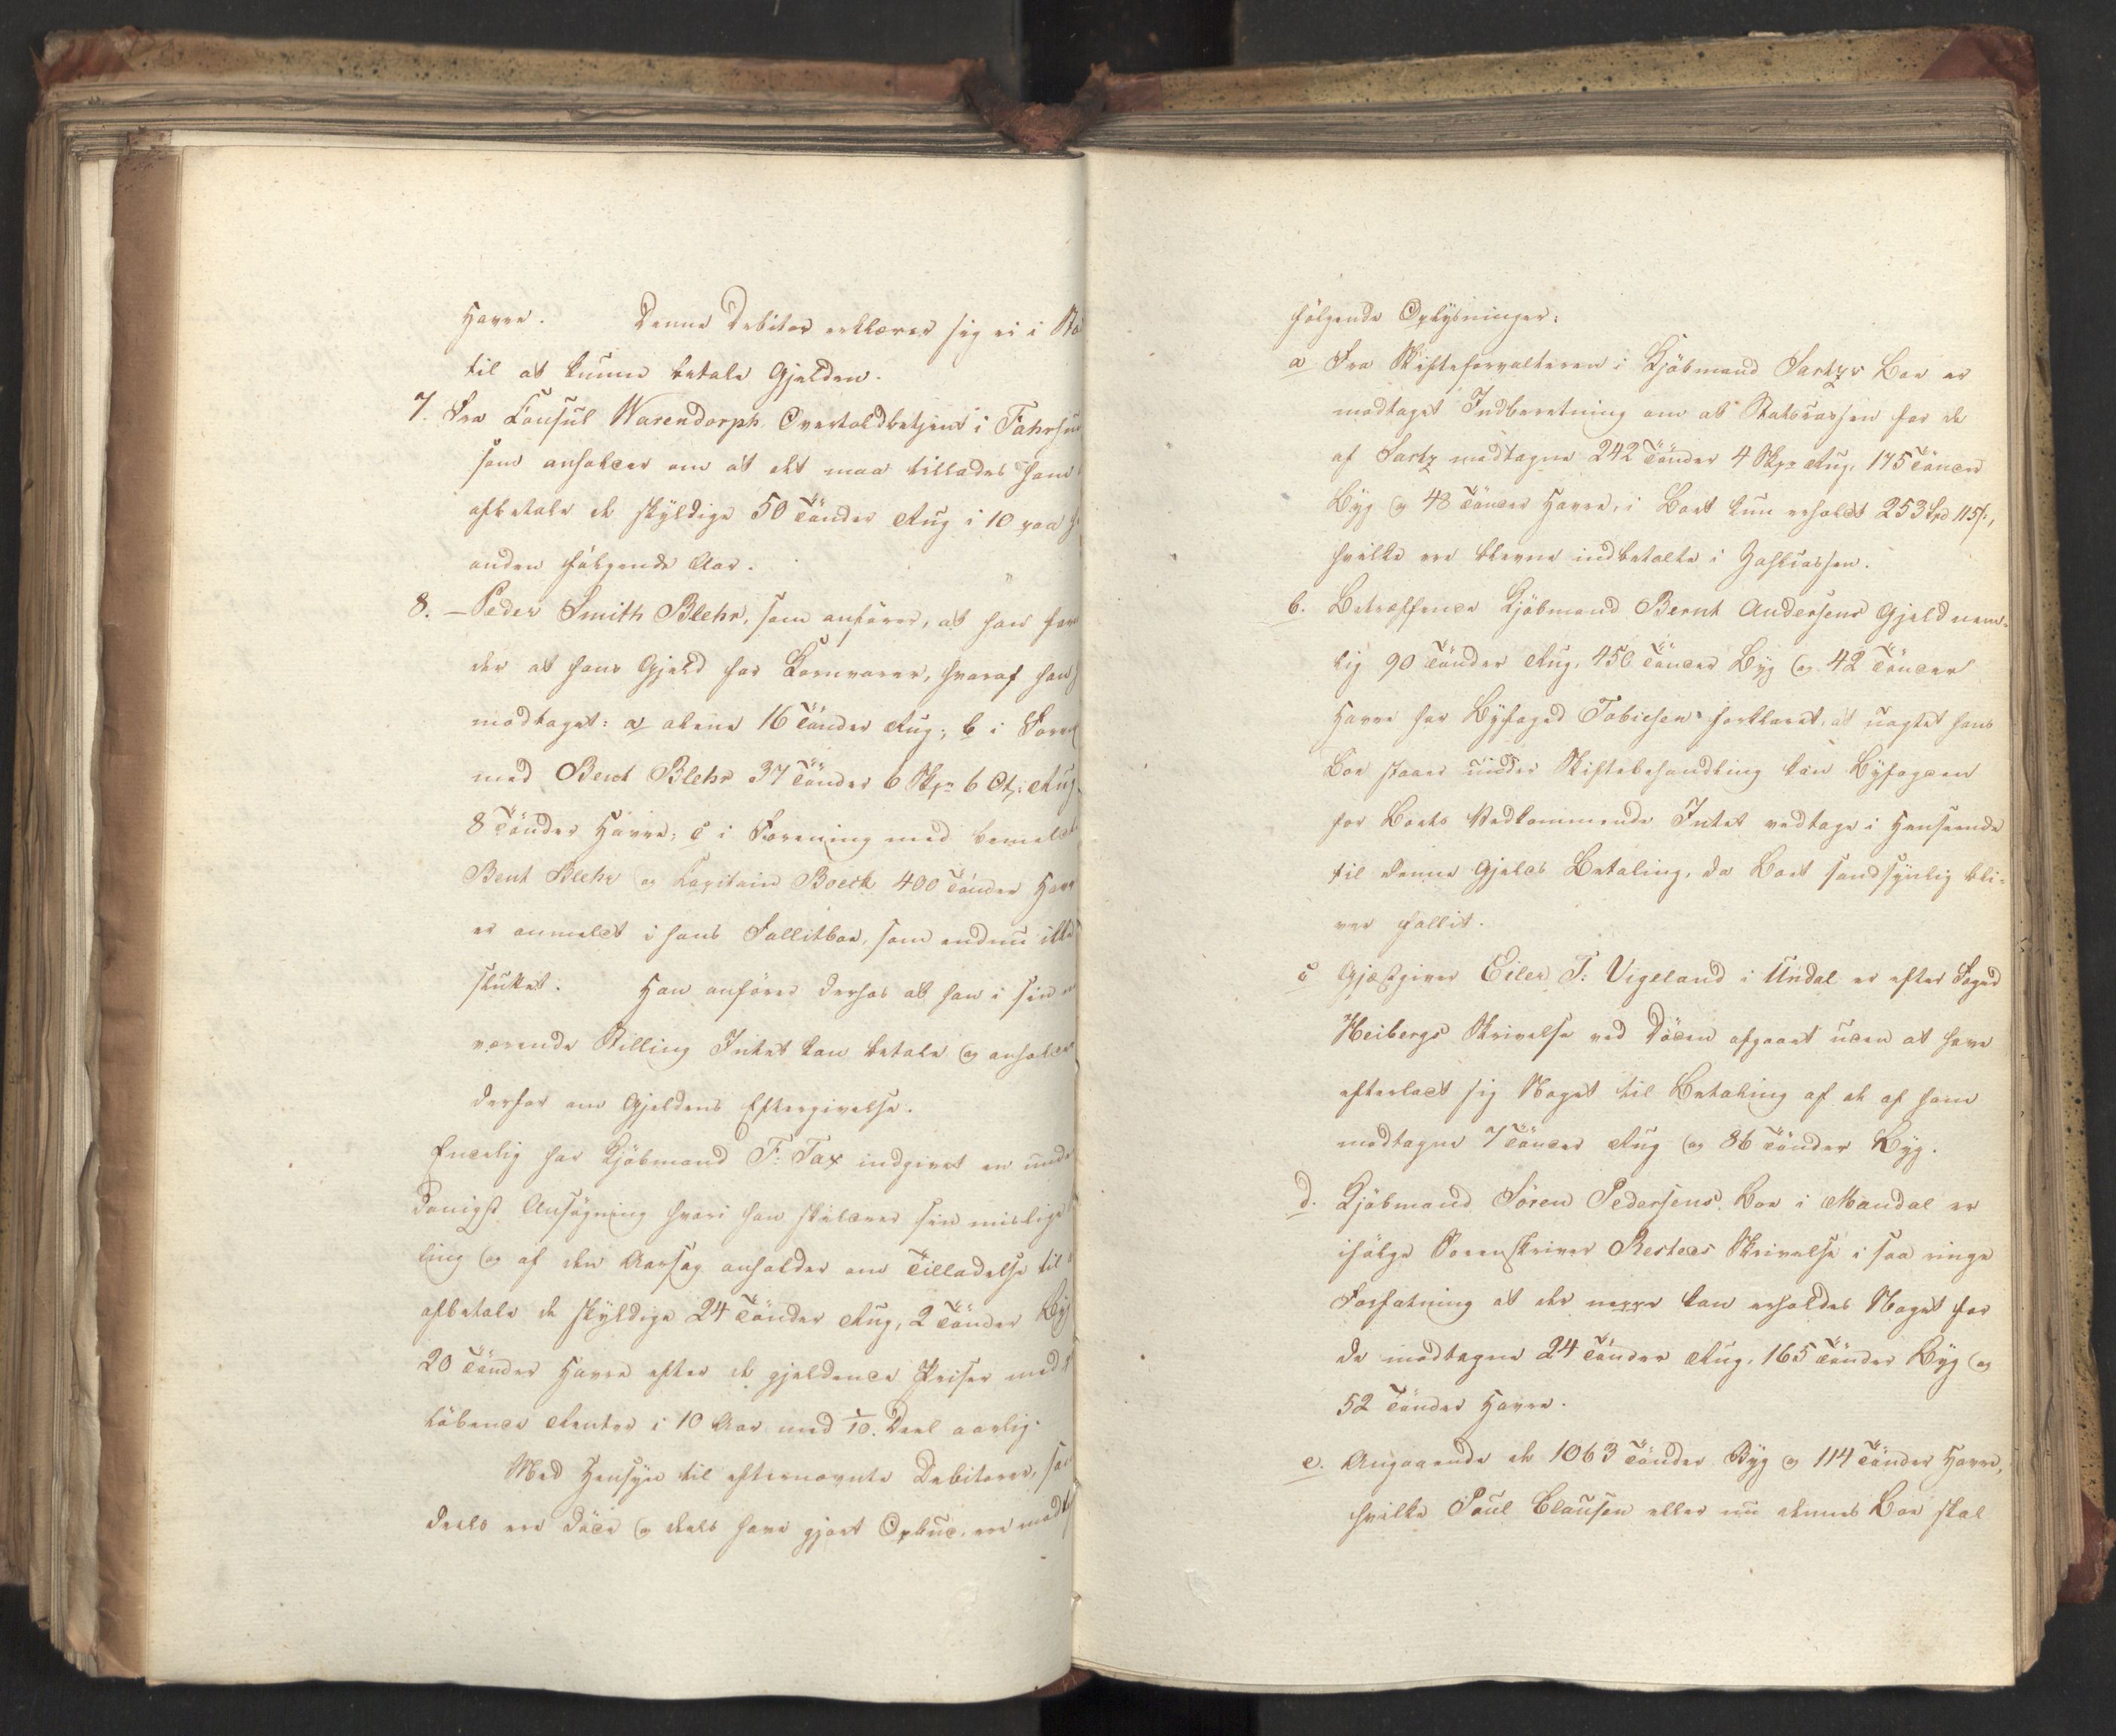 Havre. Denne Debitor erklærer sig ei i
til at kunne betale Gjelden.
7. Fra Consul Warendorph, Overtoldbetjent i Fahrsu
som anholder om at det maa tillades ham
afbetale de skyldige 50 Tönder Rug i 10 paa
anden fölgende Aar.
8. — Peder Smith Blehr, som anförer, at han
der at hans Gjeld for Kornvarer, hvoraf han
modtaget: a alene 16 Tönder Rug; b i Foren
med Bent Blehr 37 Tönder 6 Skpr 6 Otr: Rug
8 Tönder Havre; c i Forening med bemeldt
Bent Blehr og Capitain Boeck 400 Tönder Havr
er anmeldt i hans Fallitboe, som endnu ikke
sluttet. Han anförer derhos at han i sin
værende Stilling Intet kan betale og anholder
derfor om Gjeldens Eftergivelse.
Endelig har Kjöbmand F: Tax indgivet en unde
danigst Ansögning hvori han skildrer sin mislige
ling og af den Aarsag anholder om Tilladelse til
afbetale de skyldige 24 Tönder Rug, 2 Tönder Byg
20 Tönder Havre efter de gjeldende Priser med
löbende Renter i 10 Aar med 1/10. Deel aarlig.
Med Hensyn til efternævnte Debitorer, som
deels ere döde og deels have gjort Opbud, ere modt
fölgende Oplysninger:
a Fra Skifteforvalteren i Kjöbmand Sartzs Boe er
modtaget Indberetning om at Statscassen for de
af Sartz modtagne 242 Tönder 4 Skpr Rug, 175 Tönder
Byg og 48 Tönder Havre, i Boet kun erholdt 253 Spd 115 s,
hvilke ere blevne indbetalte i Zahlcassen.
b. Betræffende Kjöbmand Bernt Andersens Gjeld nem-
lig 90 Tönder Rug, 450 Tönder Byg og 42 Tönder
Havre har Byfoged Tobiesen forklaret, at uagtet hans
Boe staaer under Skiftebehandling kan Byfogden
for Boets Vedkommende Intet vedtage i Henseende
til denne Gjelds Betaling, da Boet sandsynlig bli-
ver fallit.
c Gjæstgiver Eiler T: Vigeland i Undal er efter Foged
Heibergs Skrivelse ved Döden afgaaet uden at have
efterladt sig Noget til Betaling af de af ham
modtagne 7 Tönder Rug og 86 Tönder Byg.
d. Kjöbmand Sören Pedersens Boe i Mandal er
ifölge Sorenskriver Restens Skrivelse i saa ringe
Forfatning at der neppe kan erholdes Noget for
de modtagne 24 Tönder Rug, 165 Tönder Byg og
52 Tönder Havre.
e. Angaaende de 1063 Tönder Byg og 114 Tönder Havre,
hvilke Poul Clausen eller nu dennes Boe skal